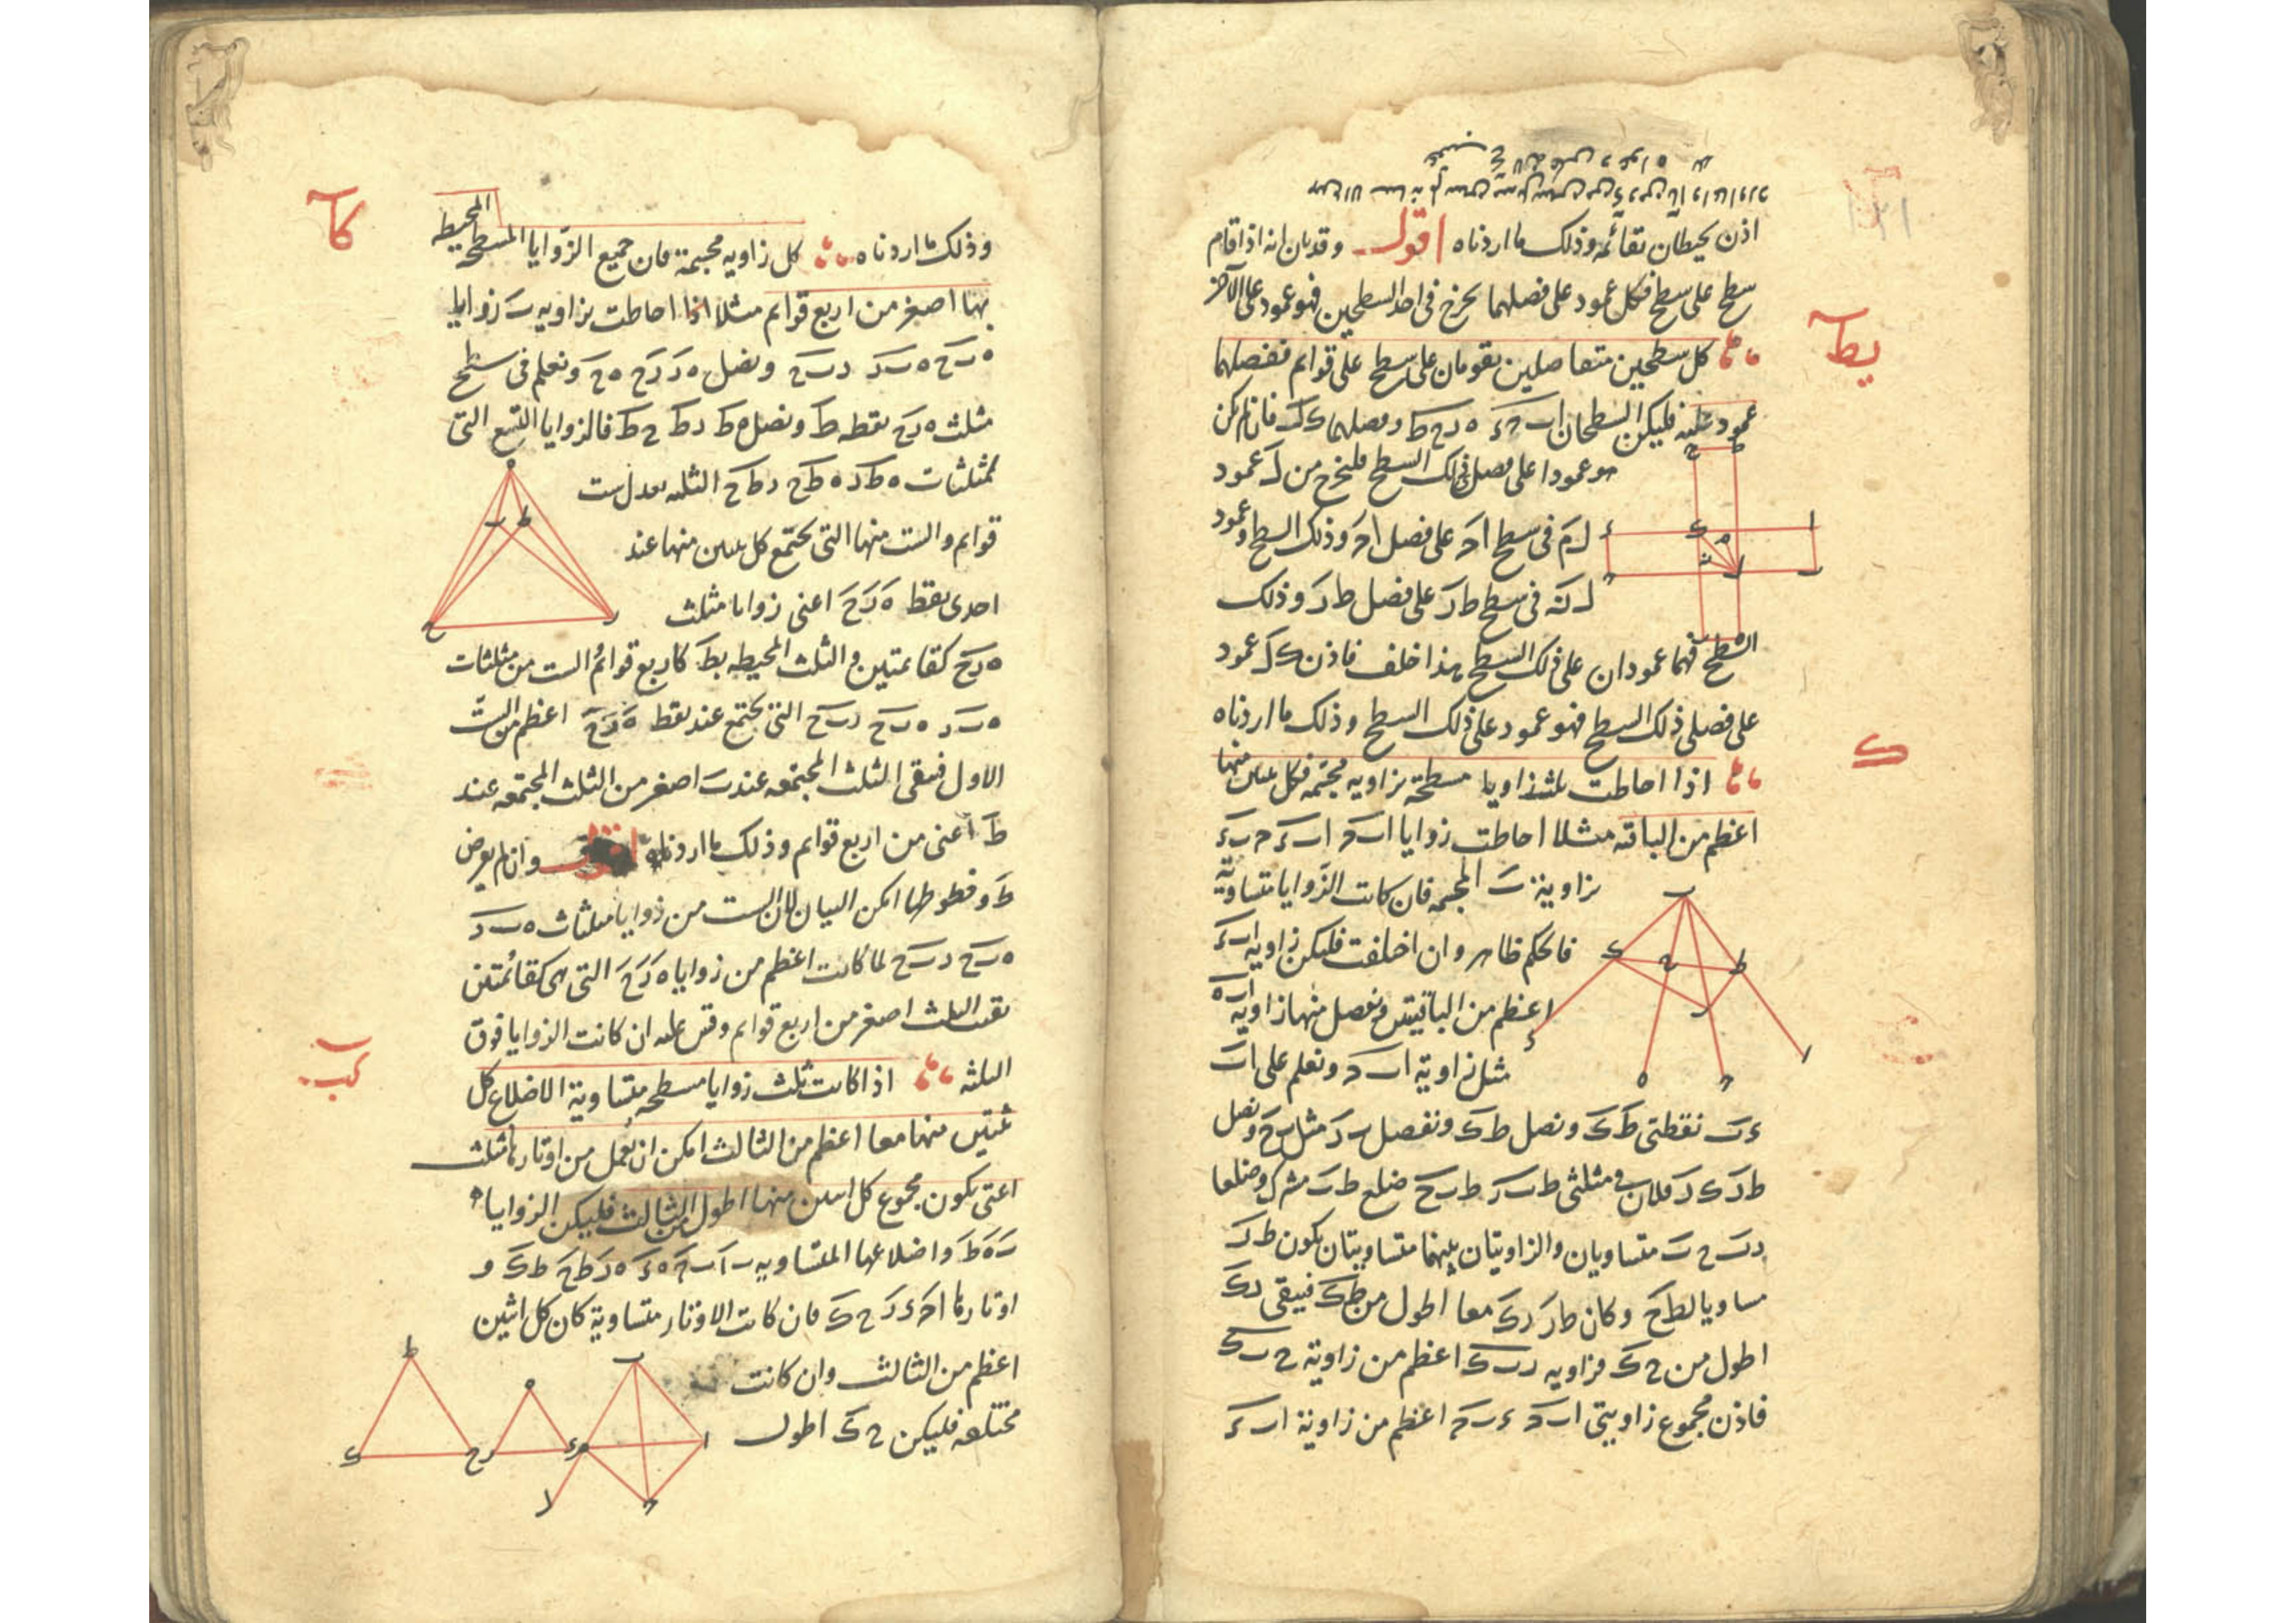 اذن يحيطان بقائمه وذلك ما اردناه اقول وقد بان انه اذا قام
سطح على سطح فكل عمود على فصلهما يخرج فى احد السطحين فهو عمود على الآخر
يط
كل سطحين متفاصلين يقومان على سطح على قوائم ففصلهما
عمود عليه فليكن السطحان ا ب ح ء ه ر ح ط وفصلهما ك ل فان لم يكن
هو عمودا على فصل ذلك السطح فليخرج من ل عمود
ل م فى سطح ا ح على فصل ا ح وذلك السطح وعمود
ل ن فى سطح ط ر على فصل ط ر وذلك
السطح فهما عمودان على ذلك السطح هذا خلف فاذن ك ل عمود
على فصلى ذلك السطح فهو عمود على ذلك السطح وذلك ما اردناه
ك
اذا احاطت ثلث زوايا مسطحة بزاويه مجسمه فكل ثنتين منها
اعظم من الباقيه مثلا احاطت زوايا ا ب ح ا ب ء ح ب ء
بزاوية ب المجسمه فان كانت الزوايا متساوية
فالحكم ظاهر وان اختلفت فليكن زاوية ا ب ء
اعظم من الباقيتين ونفصل منها زاوية ا ب ه
مثل زاوية ا ب ح ونعلم على ا ب
ء ب نقطتى ط ك ونصل ط ك ونفصل ب ر مثل ب ح ونصل
ط ر ك ر فلان فى مثلثى ط ب ر ط ب ح ضلع ط ب مشترك وضلعا
ر ب ح ب متساويان والزاويتان بينهما متساويتان يكون ط ر
مساويا لط ح وكان ط ر ر ك معا اطول من ط ك فيبقى ر ك
اطول من ح ك فزاويه ر ب ك اعظم من زاوية ح ب ك
فاذن مجموع زاويتى ا ب ح ء ب ح اعظم من زاوية ا ب ء
كا
وذلك ما اردناه كل زاويه مجسمة فان جميع الزوايا المسطح المحيطه
بها اصغر من اربع قوايم مثلا اذا احاطت بزاويه ب زوايا
ه ب ح ه ب ر ر ب ح ونصل ه ر ر ح ه ح ونعلم فى سطح
مثلث ه ر ح نقطه ط ونصل ه ط ر ط ح ط فالزوايا التسع التى
لمثلثات ه ط ر ه ط ح ر ط ح الثلثه يعدل ست
قوايم والست منها التى يجتمع كل ثنتين منها عند
احدى نقط ه ر ح اعنى زوايا مثلث
ه ر ح كقائمتين والثلث المحيطه بط كاربع قوائم والست من مثلثات
ه ب ر ه ب ح ر ب ح التى يجتمع عند نقط ه ر ح اعظم من الست
الاول فيبقى الثلث المجتمعه عند ب اصغر من الثلث المجتمعه عند
ط اعنى من اربع قوايم وذلك ما اردناه وان لم يعرض
ط وخطوطها امكن البيان لان الست من زوايا مثلثات ه ب ر
ه ب ح ر ب ح لما كانت اعظم من زوايا ه ر ح التى هى كقائمتين
بقيت الثلث اصغر من اربع قوايم وقس عليه ان كانت الزوايا فوق
كب
الثلثه اذا كانت ثلث زوايا مسطحه متساوية الاضلاع كل
ثنتين منها معا اعظم من الثالث امكن ان يعمل من اوتارها مثلث
اعنى يكون مجموع كل اثنين منها اطول من الثالث فليكن الزوايا
ب ه ط واضلاعها المتساويه ب ا ب ح ه ء ه ر ط ح ط ك و
اوتارها ا ح ء ر ح ك فان كانت الاوتار متساوية كان كل اثنين
اعظم من الثالث وان كانت
مختلفه فليكن ح ك اطول